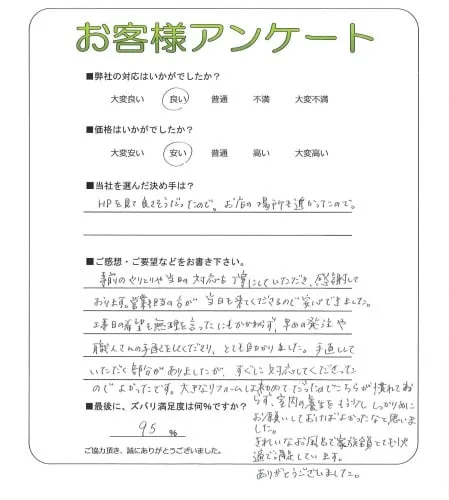 お客様アンケート
■弊社の対応はいかがでしたか？
大変良い 良い 普通 不満 大変不満
■価格はいかがでしたか？
大変安い 安い 普通 高い 大変高い
■当社を選んだ決め手は？
HPを見て良さそうだったので。お店の場所も近かったので。
■ご感想・ご要望などをお書き下さい。
事前のやりとりや当日の対応も丁寧にしていただき、感謝して
おります。営業担当の方が当日も来てくださるので安心できました。
工事日の希望も無理を言ったにもかかわらず、早めの発注や
職人さんの手配をしてくださり、とても助かりました。手直しして
いただく部分がありましたが、すぐに対応してくださった
のでよかったです。大きなリフォームは初めてだったのでこちらが慣れてお
らず、室内の養生をもう少ししっかりめに
お願いしておけばよかったなと思いま
した。
きれいなお風呂で家族全員とても快
適で満足しています。
ありがとうございました。
■最後に、ズバリ満足度は何%ですか？
95 %
ご協力頂き、誠にありがとうございました。